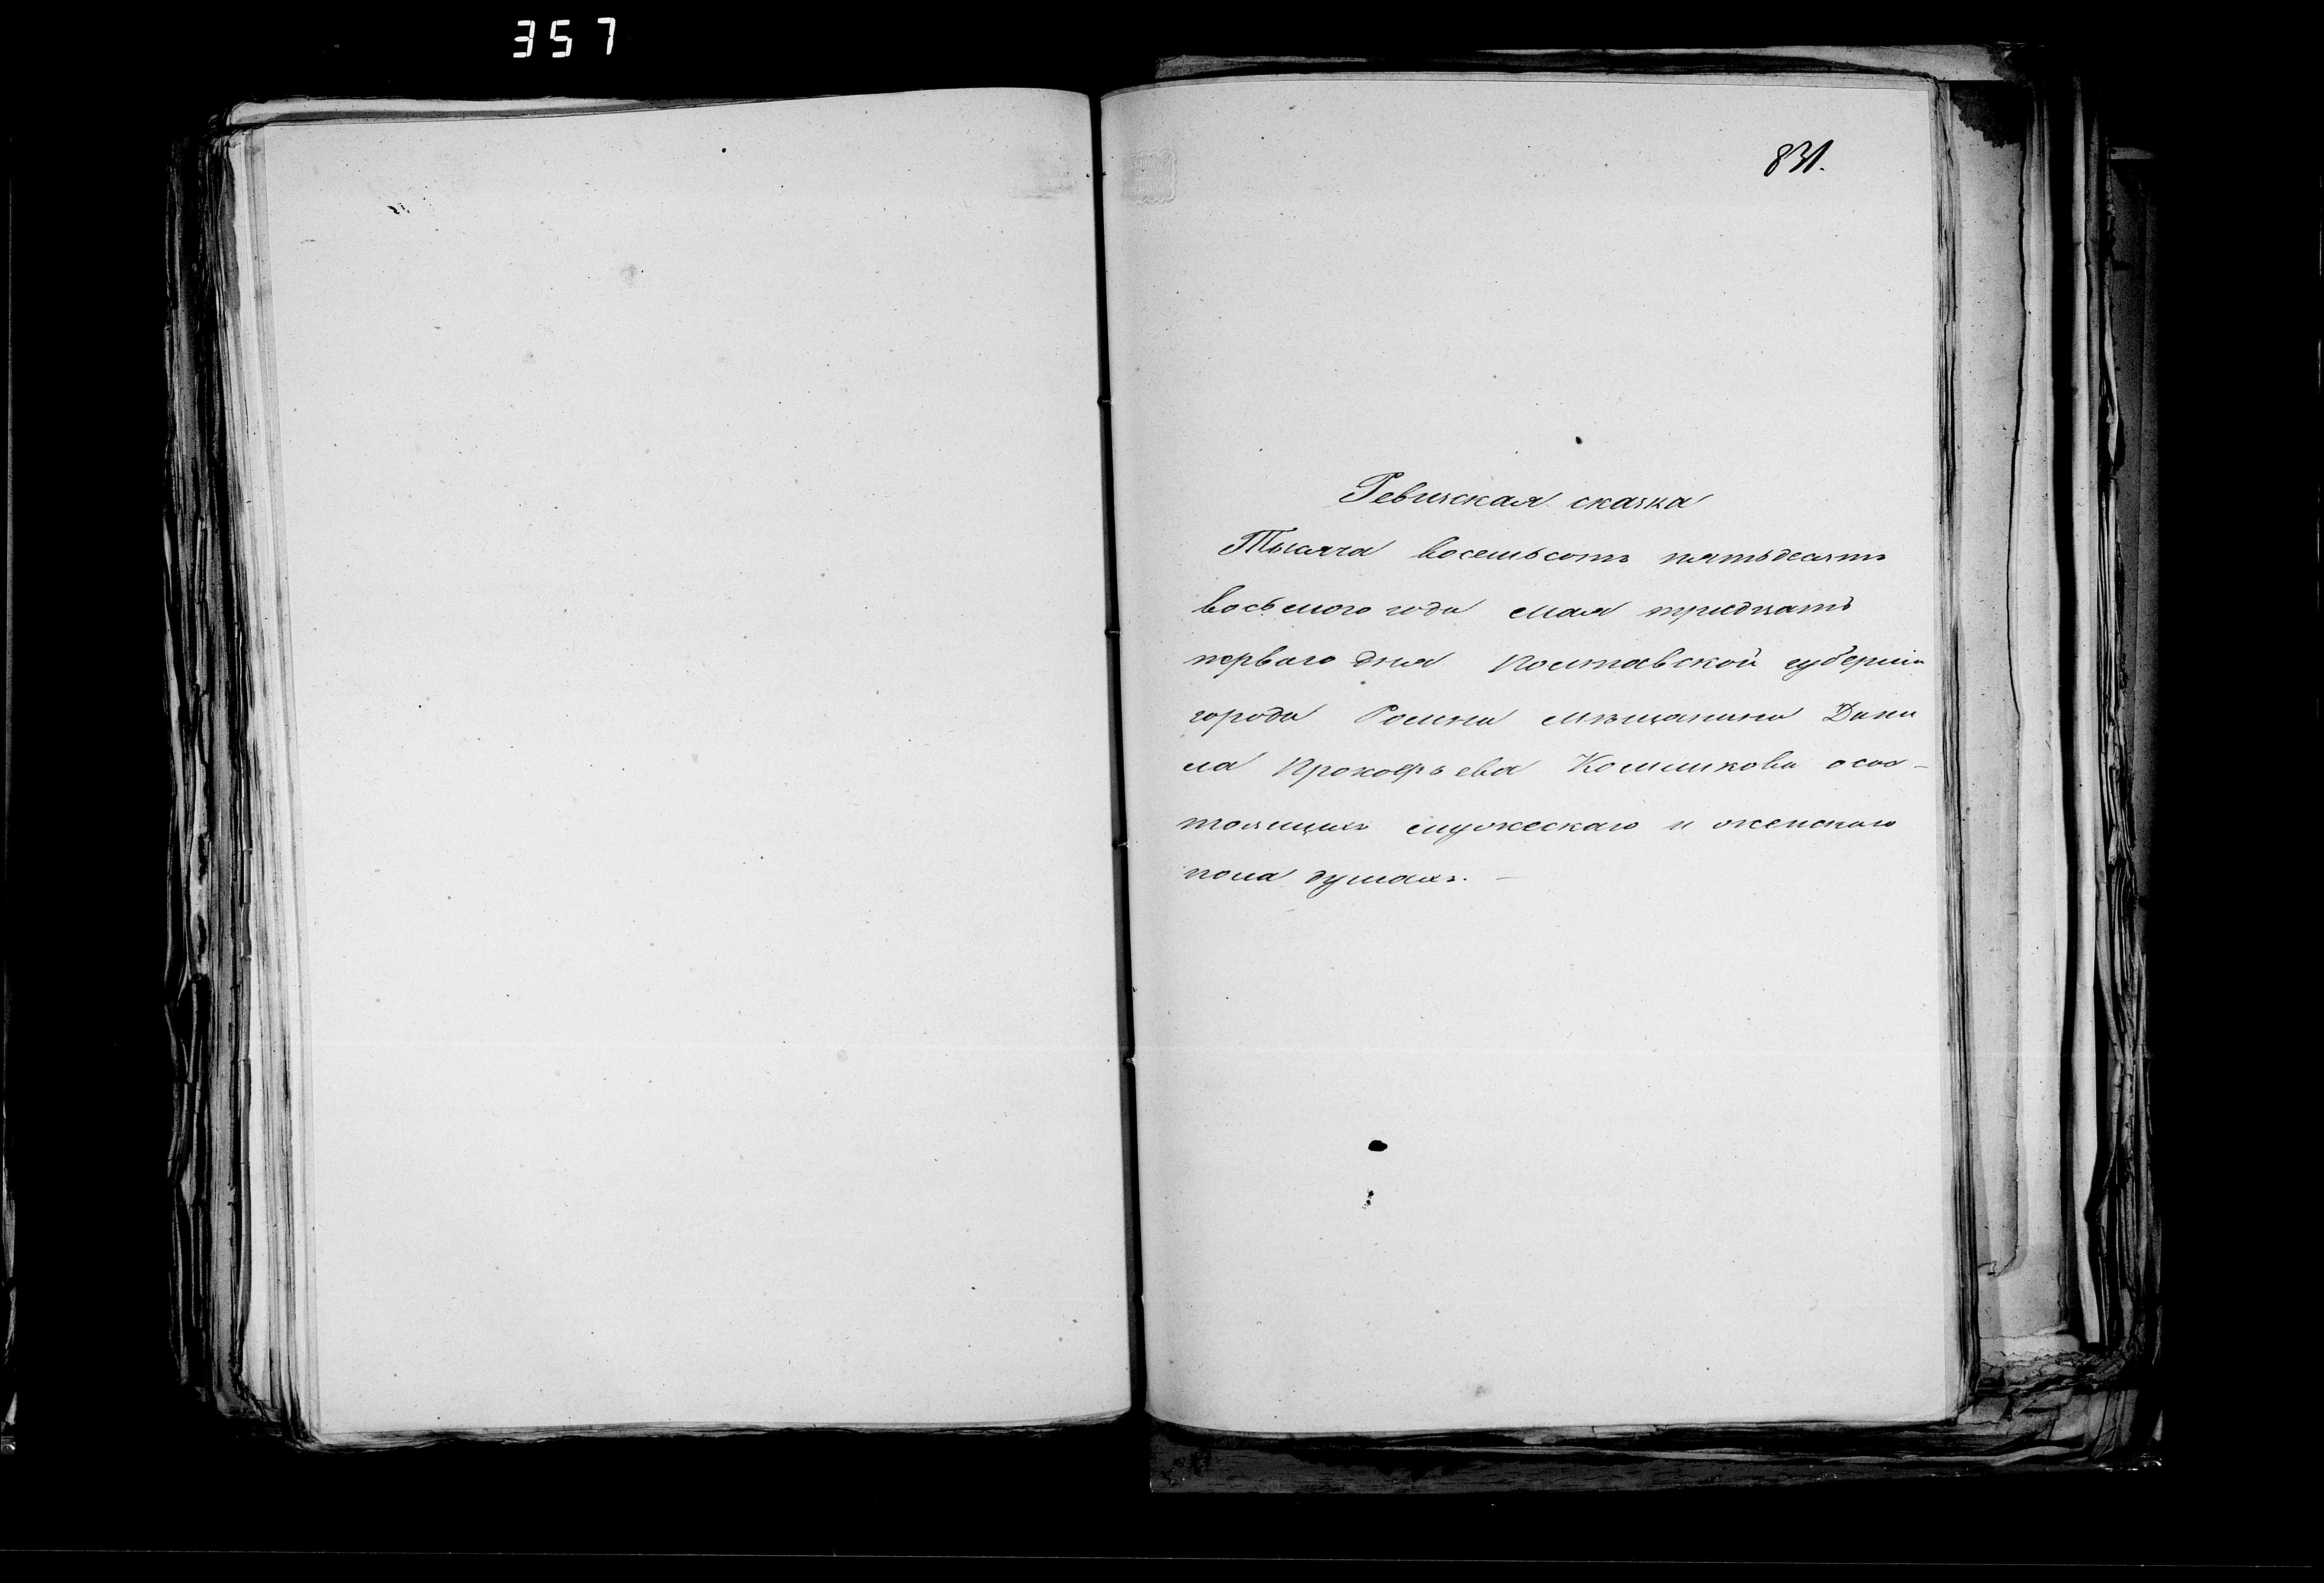 357
831.
Ревизская сказка
Тысяча восемьсотъ пятьдесятъ
восьмого года мая тридцать
перваго дня Полтавской губерніи
города Ромна мѣщанина Дани
ла Прокофьева о сос-
тоящихъ мужескаго и женскаго
пола душахъ.